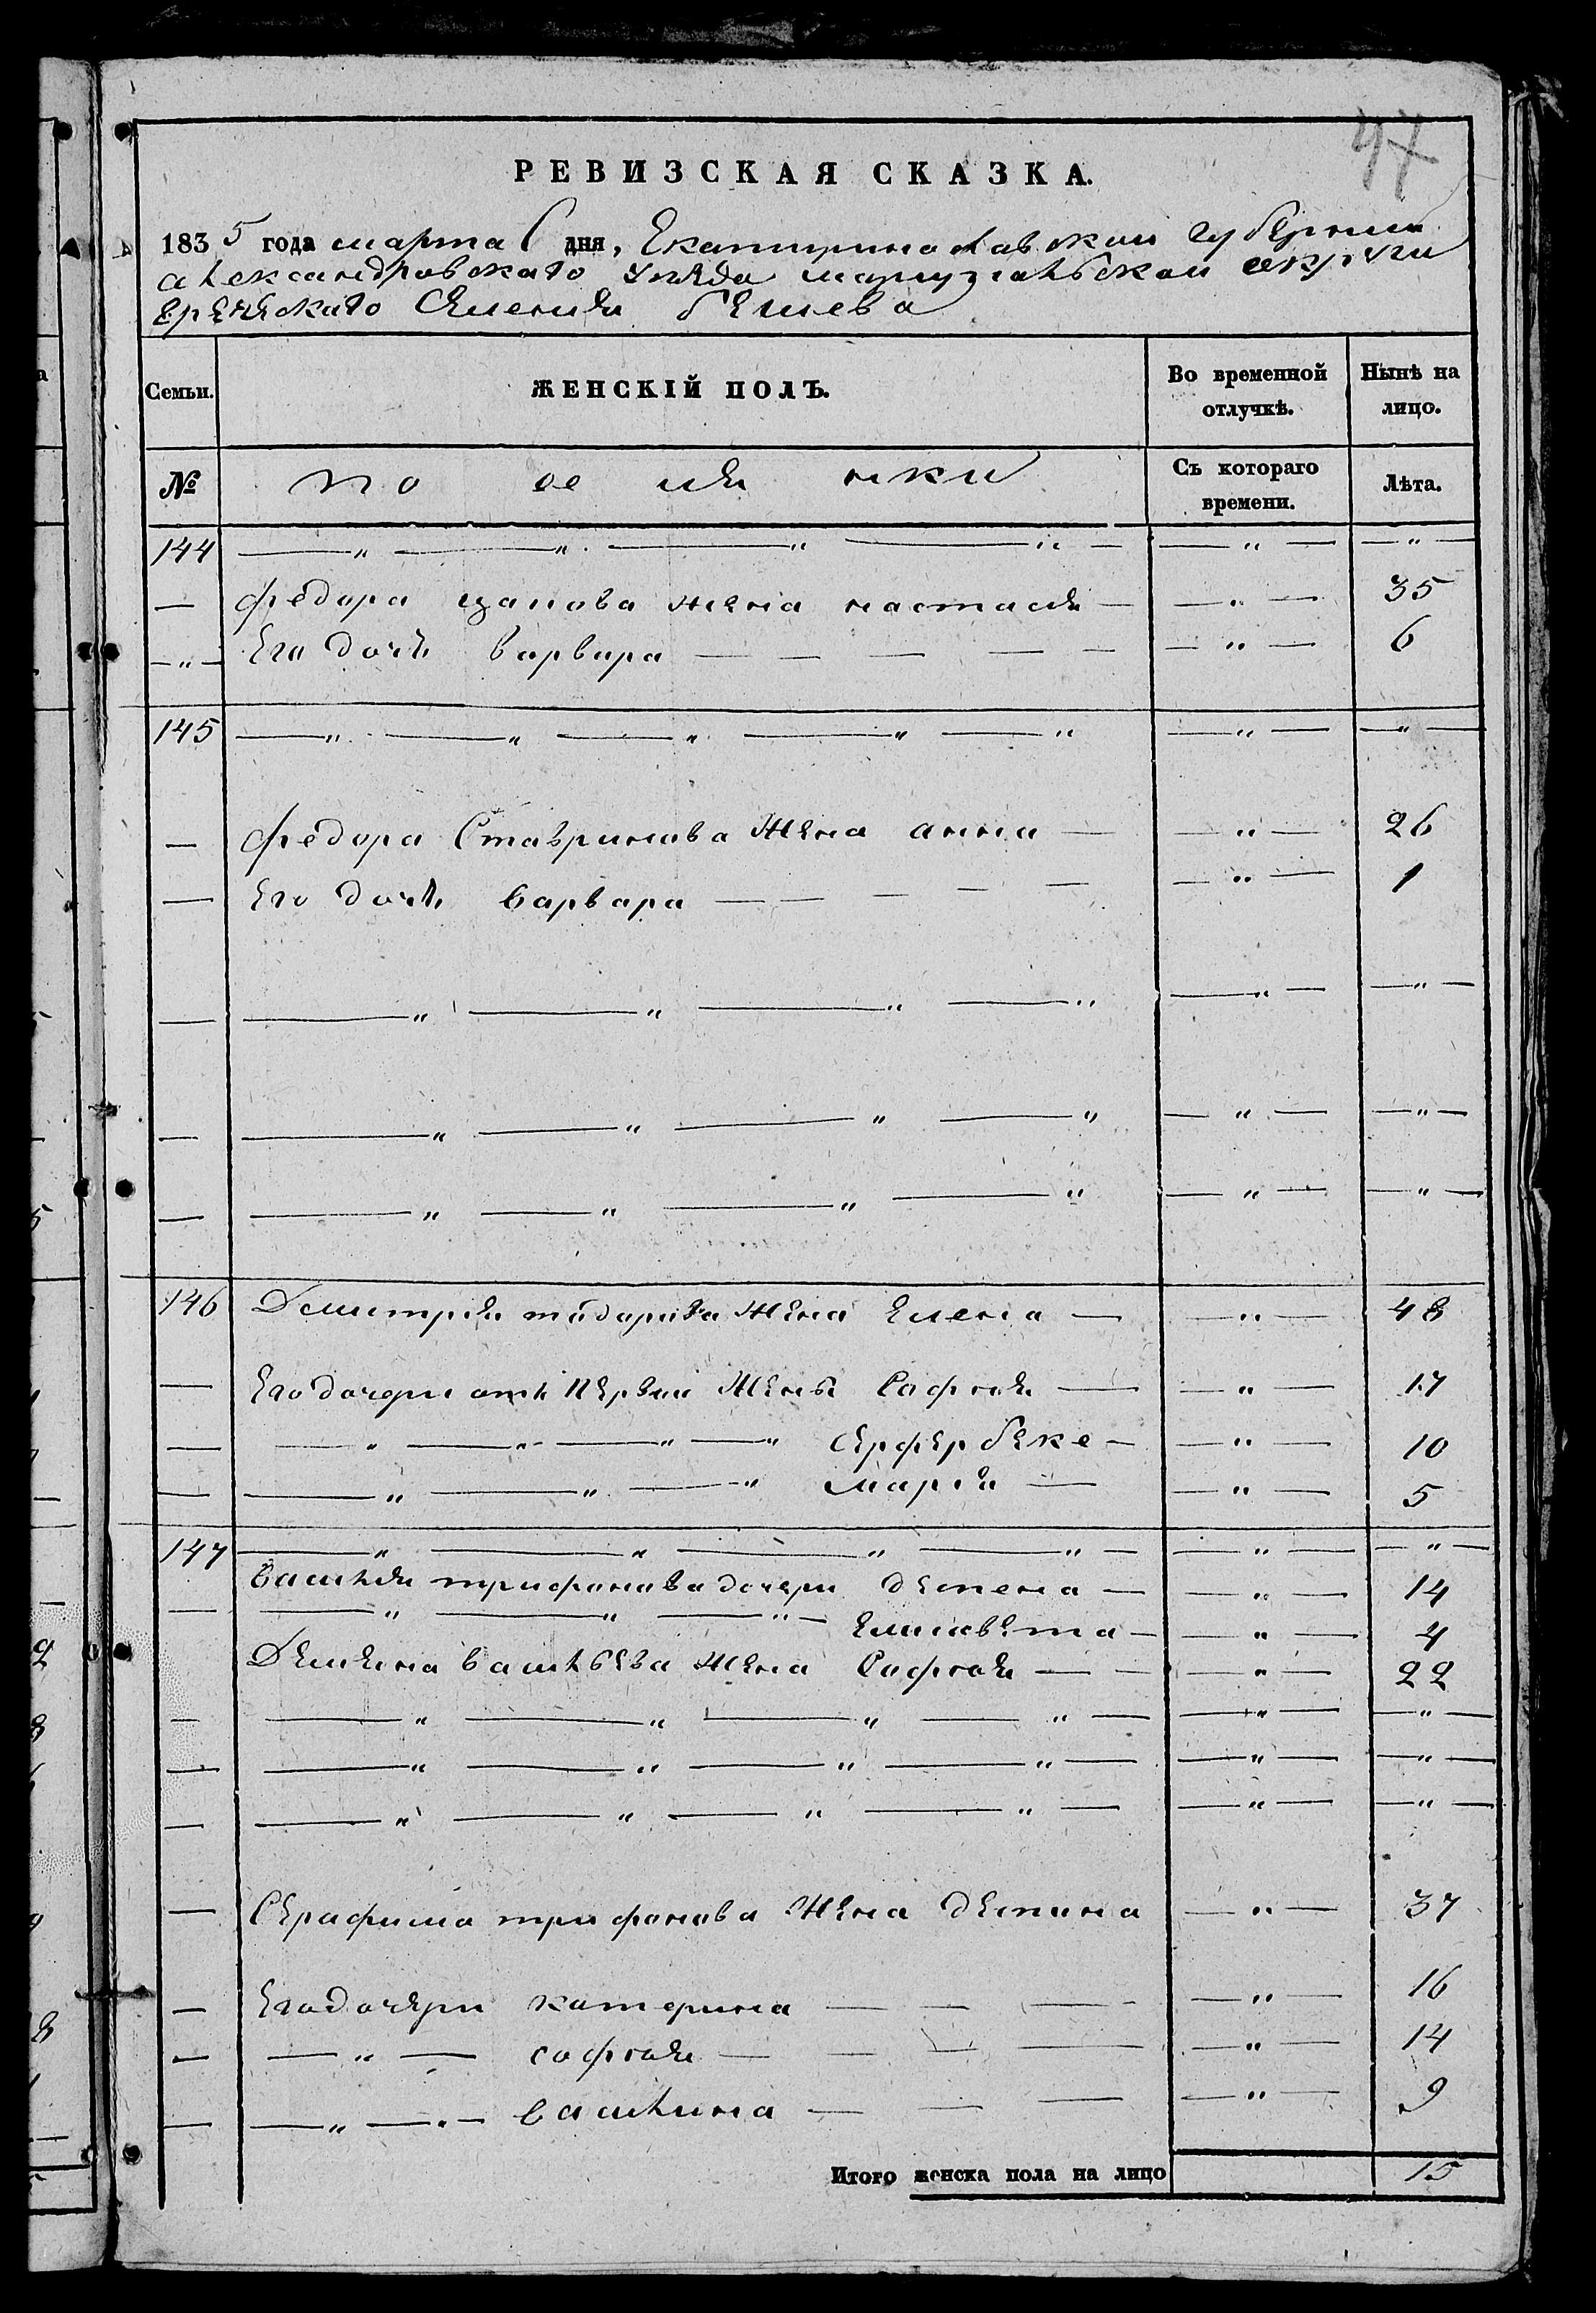 47
РЕВИЗСКАЯ СКАЗКА.
1835 года марта 6 дня, Екатеринославской губернии
александровскаго уезда мариупольской округи
греческаго селения бешева
Семьи. ЖЕНСКІЙ ПОЛЪ. Во временной отлучкѣ. Нынѣ на лицо.
№ поселянки Съ котораго времени. Лѣта.
144 — " — " — " — " — — " — — " —
— федора цапова жена настасия — — " — 35
— " — Его дочь варвара — — — — — — " — 6
145 — " — " — " — " — " — " — — " —
— федора Ставринова жена анна — — " — 26
— Его дочь варвара — — — — — — " — 1
— — " — " — " — " — " — — " —
— — " — " — " — " — " — — " —
— — " — " — " — " — " — — " —
146 Дмитрия тодорова жена елена — — " — 48
— Его дочери отъ первой жены София — — " — 17
— — " — " — " — " серфербеке — — " — 10
— — " — " — " мария — — " — 5
147 — " — " — " — " — — " — — " —
василия трифонова дочери депена — — " — 14
— — " — " — " — елисавета — — " — 4
Демяна васильева жена София — — — " — 22
— — " — " — " — " — — " — — " —
— — " — " — " — " — — " — — " —
— — " — " — " — " — — " — — " —
— Серафима трифонова жена депина — " — 37
— Его дочери катерина — — — — — " — 16
— — " — софия — — — — — " — 14
— — " — " — василина — — — — " — 9
Итого женска пола на лицо 15